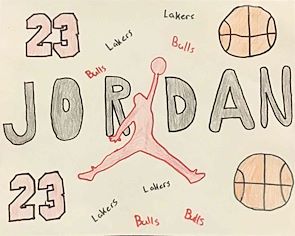 Lakers
23
Lakers
Bulls
Bulls
JORDAN
23
Lakers
Lakers
Bulls
Bulls